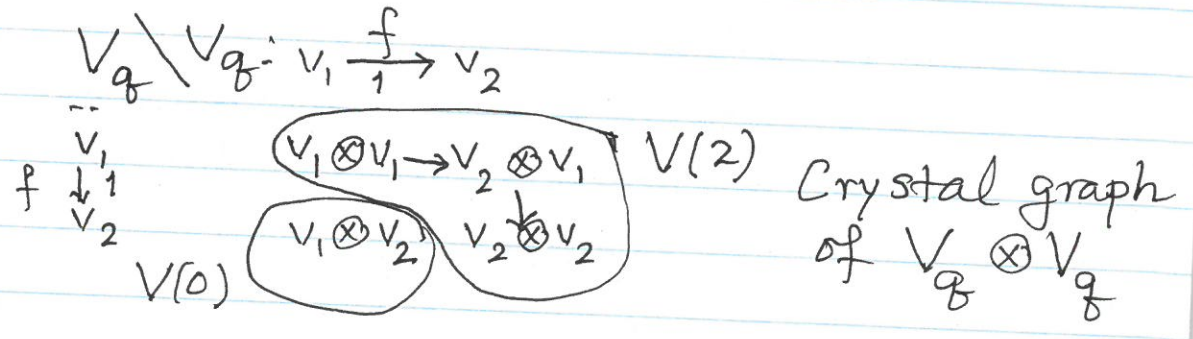 V_q \ V_q : v_1 \xrightarrow[1]{f} v_2
..
v_1
f ↓ 1
v_2
v_1 ⊗ v_1 → v_2 ⊗ v_1
↓
v_1 ⊗ v_2 v_2 ⊗ v_2
V(0)
V(2)
Crystal graph
of V_q ⊗ V_q